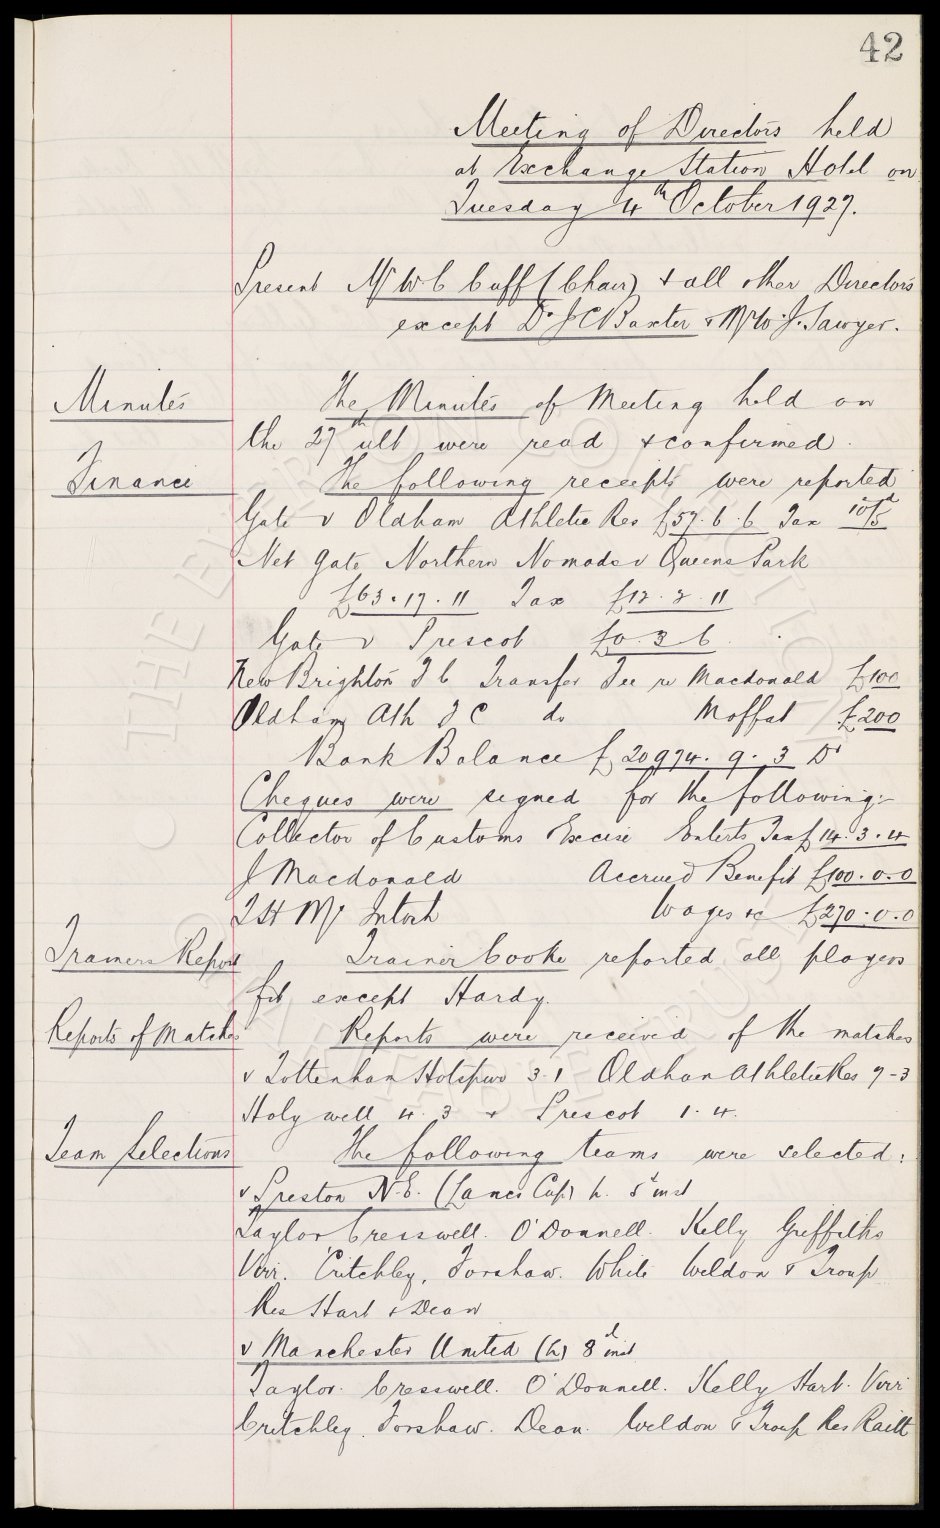 42
Meeting of Directors held
at Exchange Station Hotel on
Tuesday 4th October 1927.
Present Mr W C Cuff (Chair) & all other Directors
except Dr J C Baxter & Mr W. J. Sawyer.
Minutes The Minutes of Meeting held on
the 27th ult were read & confirmed.
Finance The following receipts were reported
Gate v Oldham Athletic Res £57. 6. 6 Tax 10/5d
Net Gate Northern Nomads v Queens Park
£63. 17. 11 Tax £12. 2. 11
Gate v Prescot £0. 3 6
New Brighton F C Transfer Fee re Macdonald £100
Oldham Ath F C do Moffat £200
Bank Balance £20974. 9. 3 Dr
Cheques were signed for the following:-
Collector of Customs Excise Enterts Tax £14. 3. 4
J Macdonald Accrued Benefit £100. 0. 0
T H McIntosh Wages &c £270. 0. 0
Trainers Report Trainer Cooke reported all players
fit except Hardy.
Reports of Matches Reports were received of the matches
v Tottenham Hotspur 3.1 Oldham Athletic Res 7-3
Holywell 4. 3 & Prescot 1. 4.
Team Selections The following teams were selected:
v Preston N.E. (Lancs Cup) h. 5th inst
Taylor Cresswell. O'Donnell. Kelly Griffiths
Virr. Critchley, Forshaw. White Weldon & Troup
Res Hart & Dean
v Manchester United (h) 8th inst
Taylor. Cresswell. O'Donnell. Kelly Hart. Virr
Critchley. Forshaw. Dean. Weldon & Troup Res Raitt
THE EVERTON COLLECTION
CHARITABLE TRUST